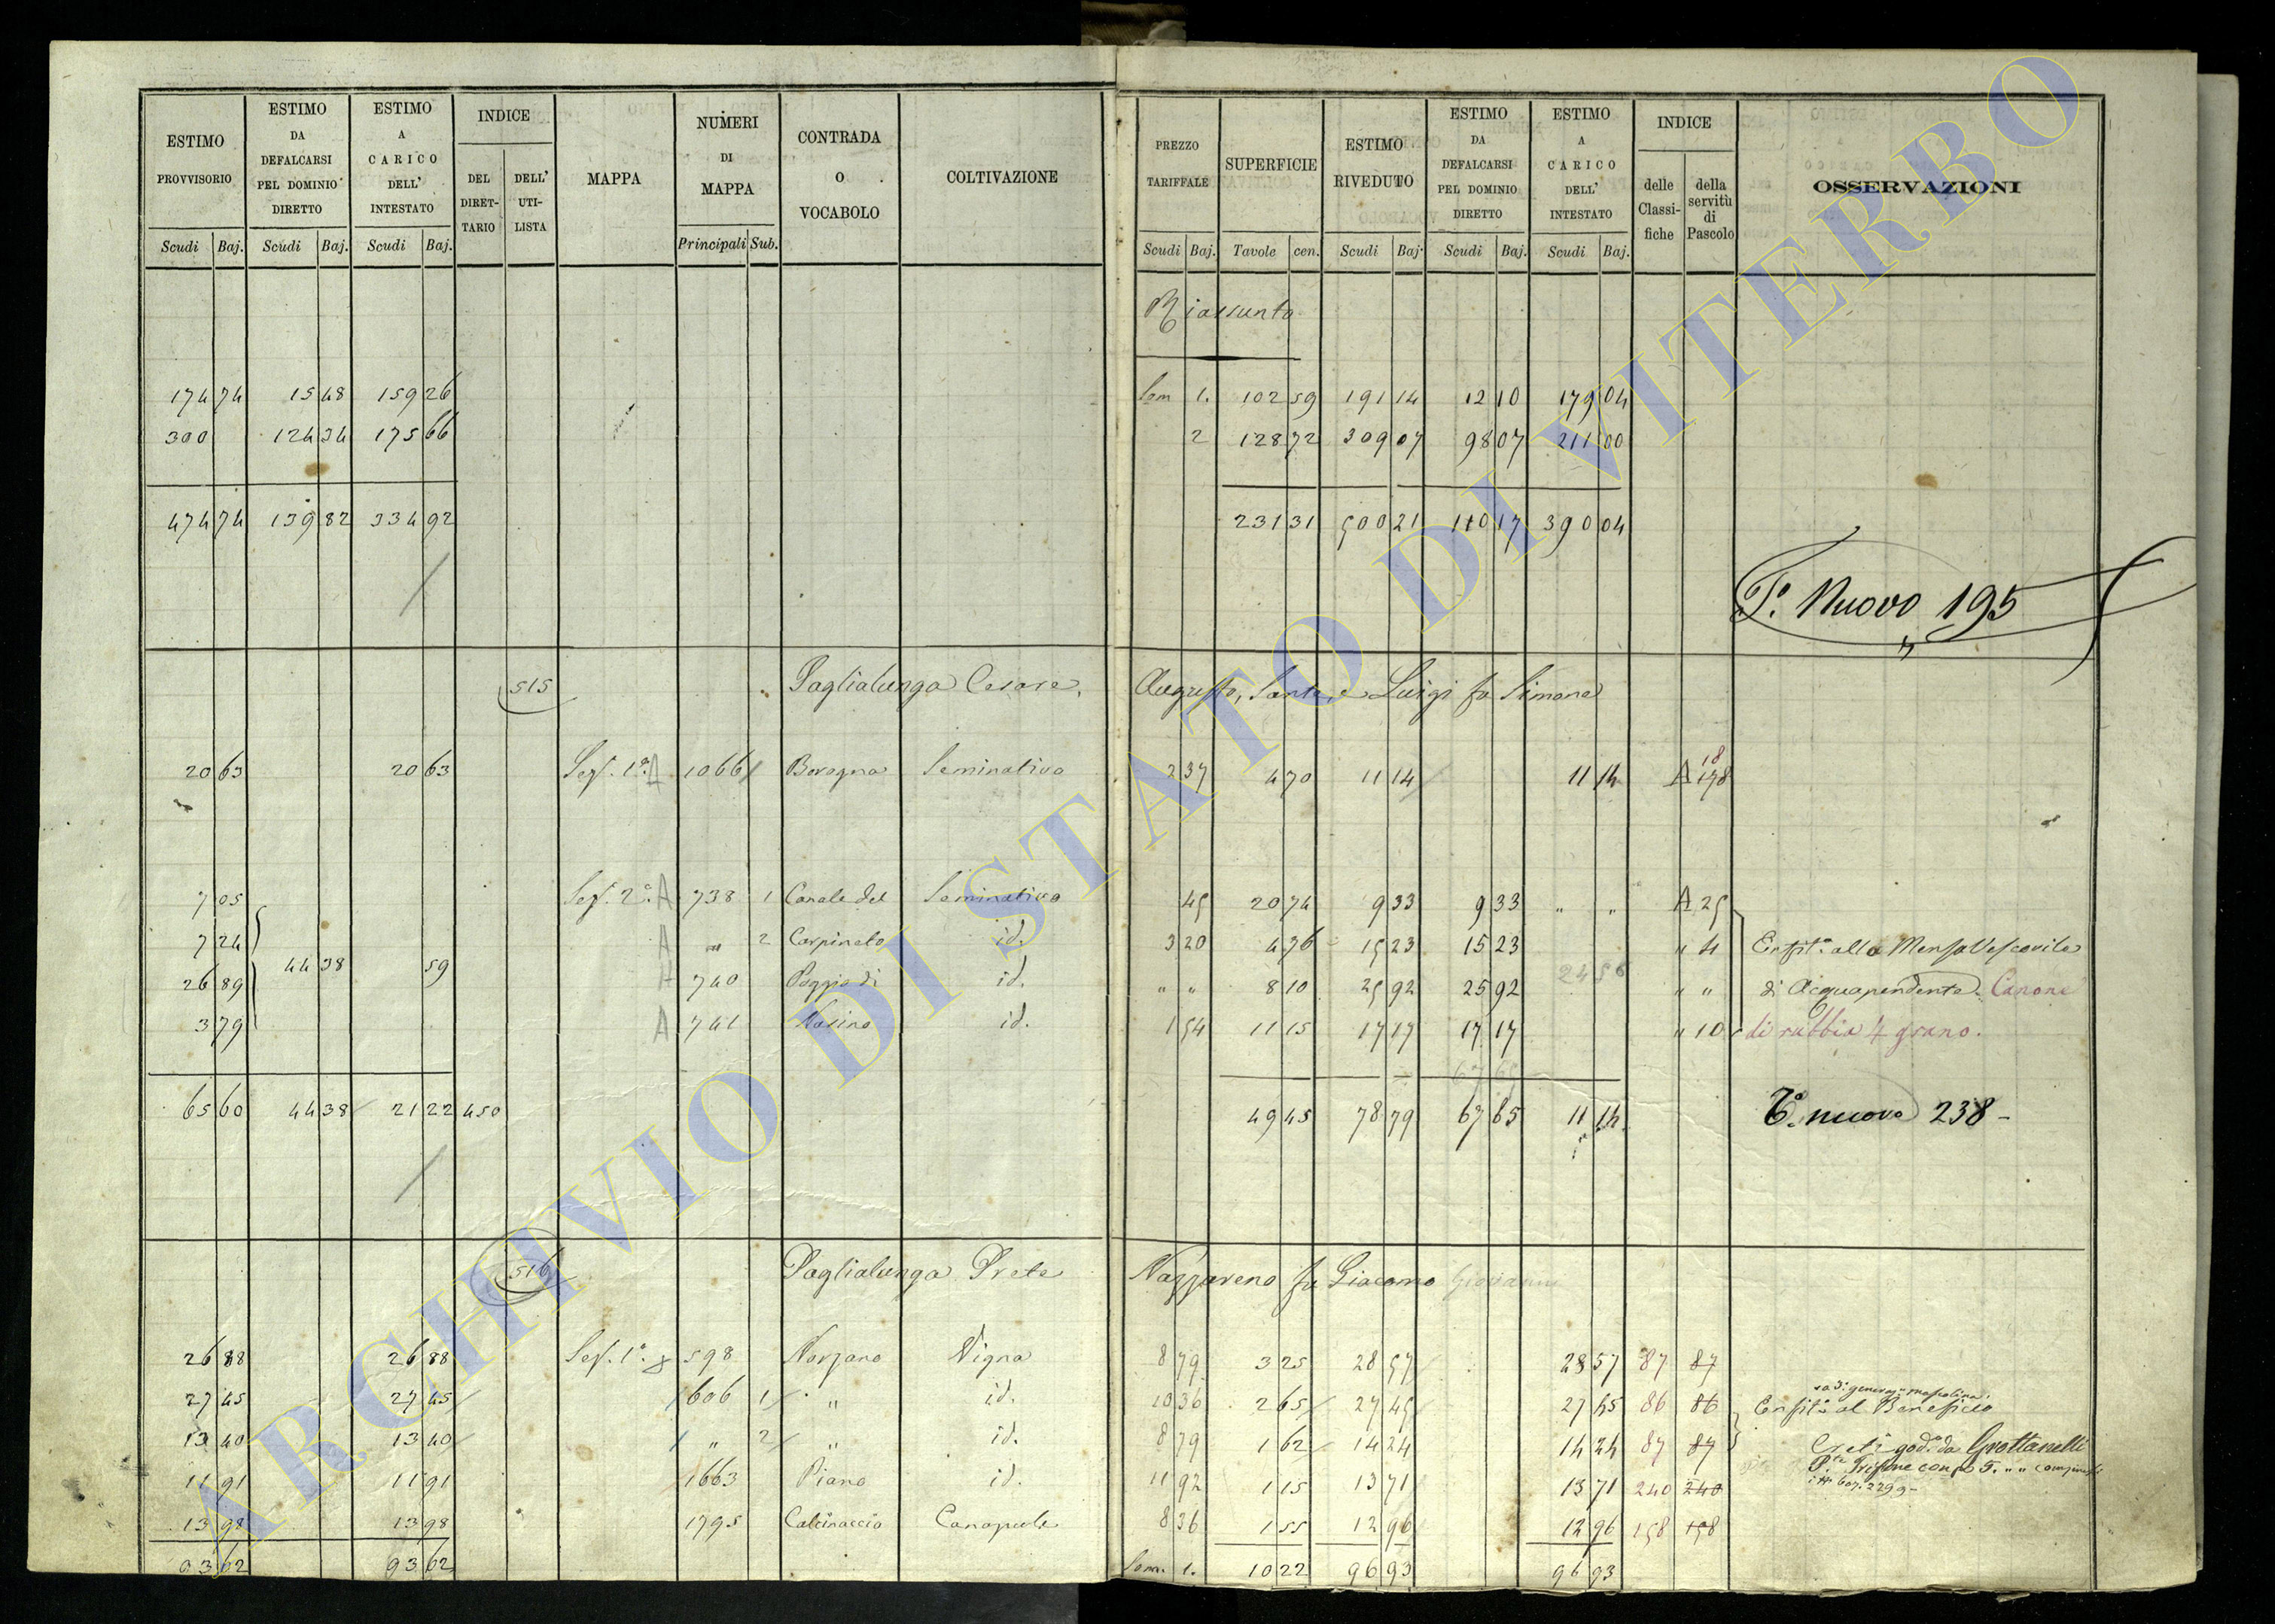 ESTIMO PROVVISORIO | ESTIMO DA DEFALCARSI PEL DOMINIO DIRETTO | ESTIMO A CARICO DELL' INTESTATO | INDICE | MAPPA | NUMERI DI MAPPA | CONTRADA O VOCABOLO | COLTIVAZIONE | PREZZO TARIFFALE | SUPERFICIE | ESTIMO RIVEDUTO | ESTIMO DA DEFALCARSI PEL DOMINIO DIRETTO | ESTIMO A CARICO DELL' INTESTATO | INDICE | OSSERVAZIONI
DEL DIRET-TARIO | DELL' UTI-LISTA | delle Classi-fiche | della servitù di Pascolo
Scudi | Baj. | Scudi | Baj. | Scudi | Baj. | Principali | Sub. | Scudi | Baj. | Tavole | cen. | Scudi | Baj. | Scudi | Baj. | Scudi | Baj.
Riassunto
174 74 | 15 48 | 159 26 | Sem 1. | 102 59 | 191 14 | 12 10 | 179 04
300 | 124 34 | 175 66 | 2 | 128 72 | 309 07 | 98 07 | 211 00
474 74 | 139 82 | 334 92 | 231 31 | 500 21 | 110 17 | 390 04
T.º Nuovo 195
515 | Paglialunga Cesare, Augusto, Santa, e Luigi fu Simone
20 63 | 20 63 | Sez. 1ª A | 1066 | Bovagna | Seminativo | 2 37 | 4 70 | 11 14 | 11 14 | 18 A 178
7 05 | Sez. 2ª A | 738 | 1 | Canale del | Seminativo | 45 | 20 74 | 9 33 | 9 33 | " " | A 25
7 24 | A | " | 2 | Carpineto | id. | 3 20 | 4 76 | 15 23 | 15 23 | " 4 | Enfit.ª alla Mensa Vescovile
44 38 | 59
26 89 | A | 740 | Poggio di | id. | " " | 8 10 | 25 92 | 25 92 | 24 56 | " " | di Acquapendente. Canone
3 79 | A | 741 | Nasino | id. | 1 54 | 11 15 | 17 17 | 17 17 | " 10 | di rubbia 4 grano.
67 65
65 60 | 44 38 | 21 22 | 450 | 49 45 | 78 79 | 67 65 | 11 14 | T.º nuovo 238 -
516 | Paglialunga Prete Nazzareno fu Giacomo Giovanni
26 88 | 26 88 | Sez. 1ª | 598 | Norzano | Vigna | 8 79 | 3 25 | 28 57 | 28 57 | 87 | 87
27 45 | 27 45 | 1606 | 1 | " | id. | 10 36 | 2 65 | 27 45 | 27 45 | 86 | 86 | a 3ª generaz.ne mascolina. Enfit.ª al Beneficio
13 40 | 13 40 | " | 2 | " | id. | 8 79 | 1 62 | 14 24 | 14 24 | 87 | 87 | Creti god.º da Grottanelli
11 91 | 11 91 | 1663 | Piano | id. | 11 92 | 1 15 | 13 71 | 13 71 | 240 | 240
13 98 | 13 98 | 1795 | Calcinaccio | Canapule | 8 36 | 1 55 | 12 96 | 12 96 | 158 | 158
93 62 | 93 62 | Som. 1. | 10 22 | 96 93 | 96 93
ARCHIVIO DI STATO DI VITERBO